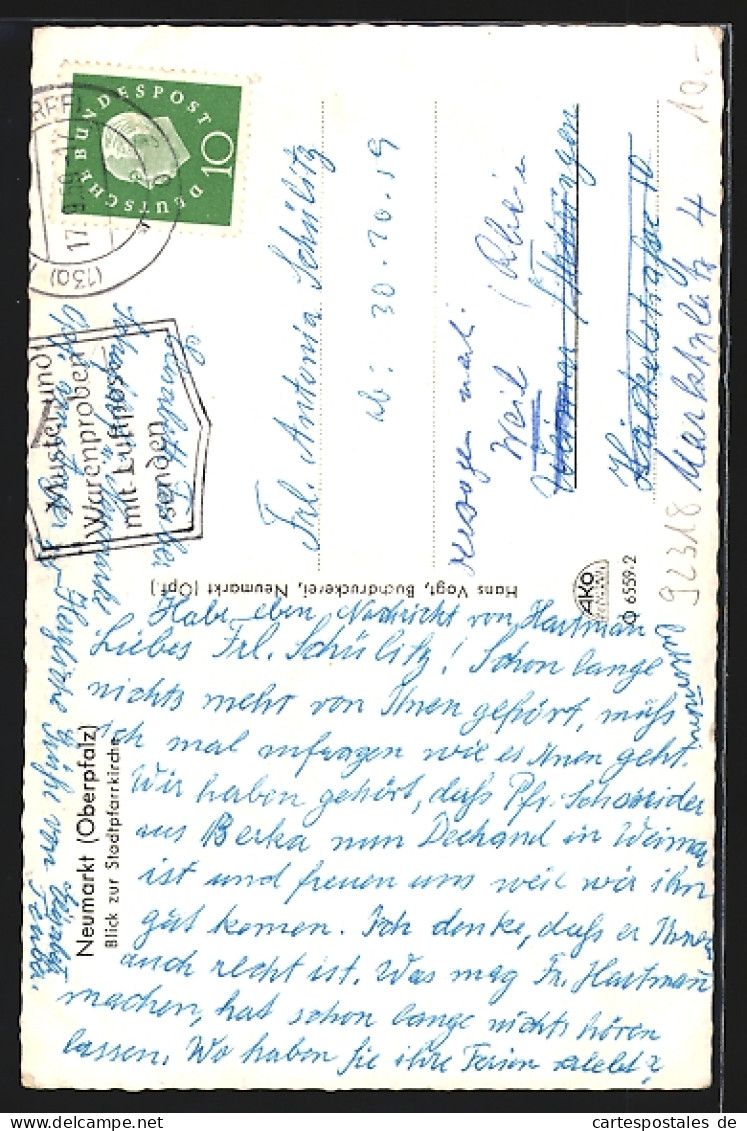 Habe eben Nachricht von Hartman
Liebes Frl. Schülitz! Schon lange
nichts mehr von Ihnen gehört, muß
ich mal anfragen wie es Ihnen geht.
Wir haben gehört, daß Pfr. Schneider
aus Berka nun Dechand in Weimar
ist und freuen uns weil wir ihn
gut kennen. Ich denke, daß er Ihnen
auch recht ist. Was mag Fr. Hartman
machen, hat schon lange nichts hören
lassen. Wo haben Sie ihre Ferien erlebt?
Herzliche Grüße von
Neumarkt (Oberpfalz)
Blick zur Stadtpfarrkirche
Hans Vogt, Buchdruckerei, Neumarkt (Opf.)
AKO
6559·2
DEUTSCHE BUNDESPOST
10
(13a)
Muster und
Warenproben
mit Luftpost
senden
Frl. Antonia Schülitz
30-10-19
Weil (Rhein
Marktplatz 4
92318
10,-
cartespostales de